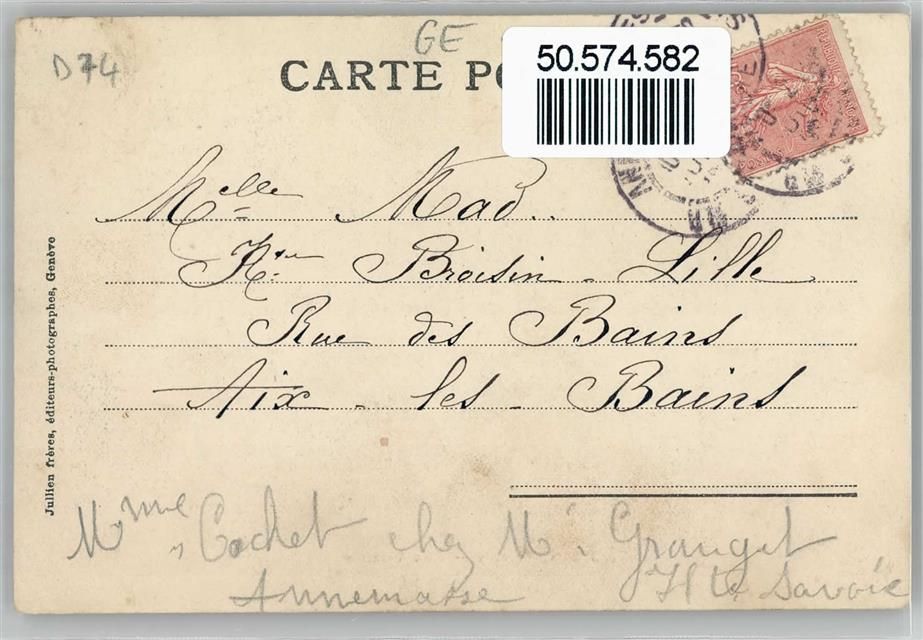 GE
D74
CARTE PO
50.574.582
Melle Mad..
Broisin - Lille
Rue des Bains
Aix - les - Bains
Jullien frères, éditeurs-photographes, Genève
Mme Cochet chez Mr. Granget
Annemasse Hte Savoie